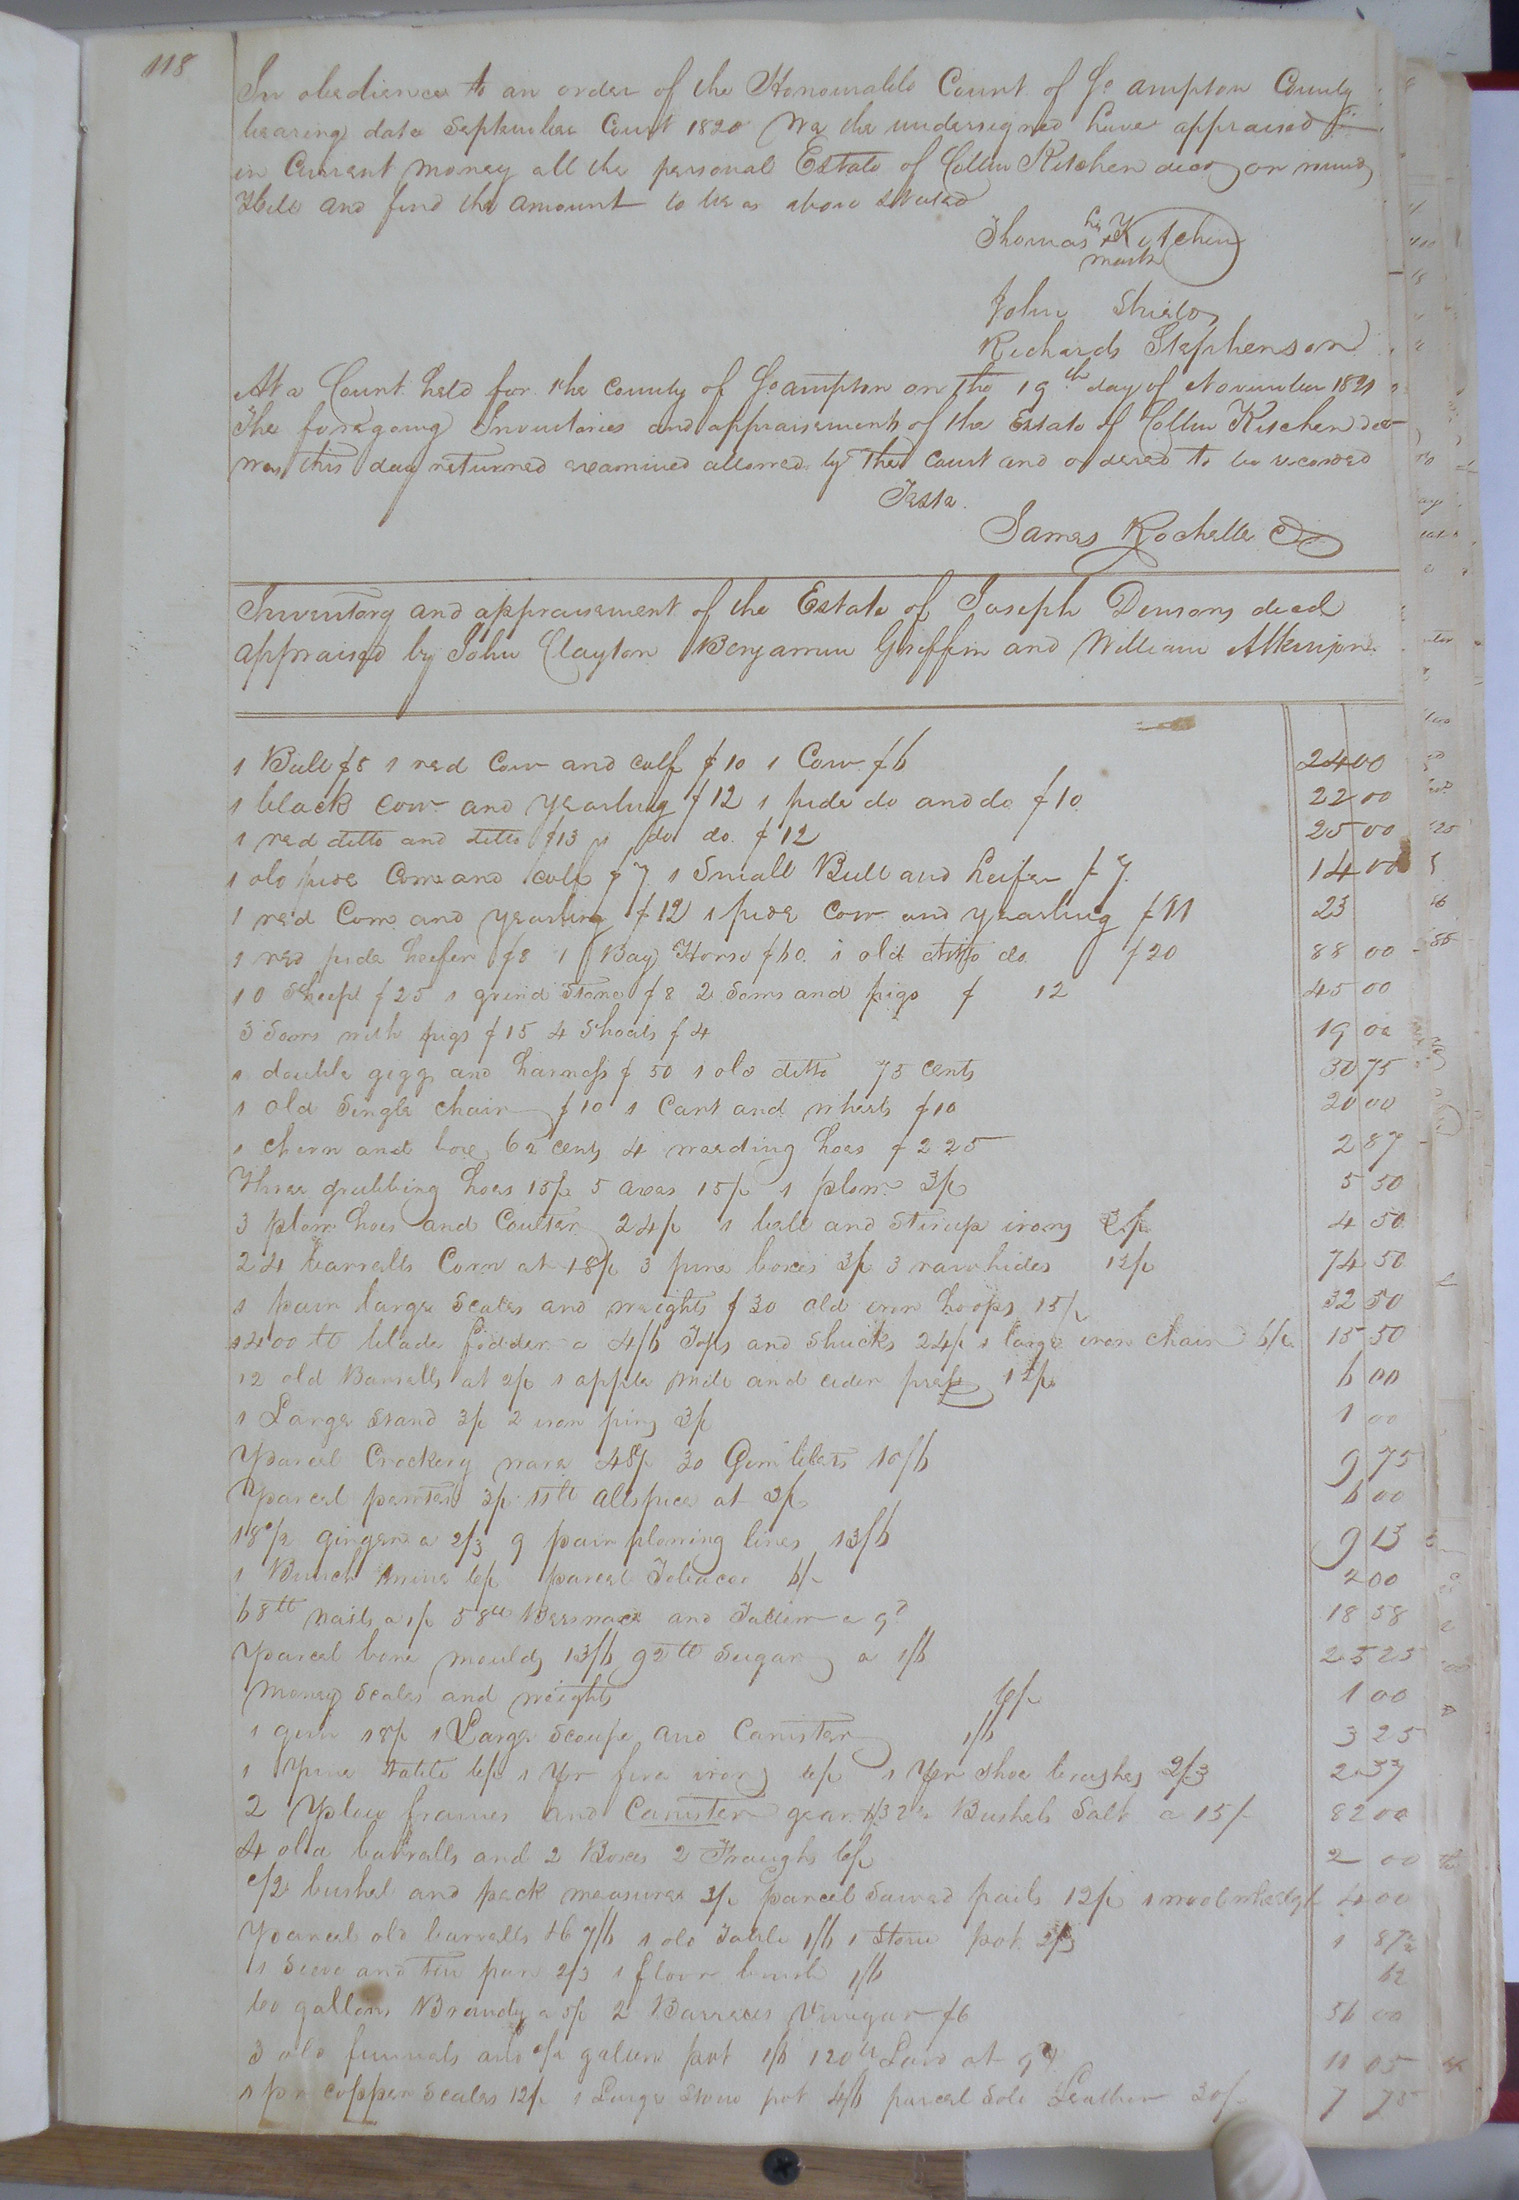 118
In obedience to an order of the Honourable Court of So ampton County
bearing date September Court 1820 We the undersigned have appraised
in Current money all the personal Estate of Collin Kitchen decd
and find the amount to be as above stated
his
Thomas Kitchin
mark
John
Richards Stephenson
At a Court held for the County of So ampton on the 19th day of November 1821
The foregoing Inventories and appraisements of the Estate of Collin Kitchen dec
was this day returned examined allowed by the Court and ordered to be recorded
Teste
James Rochelle
Inventory and appraisement of the Estate of Joseph Densons decd
appraised by John Clayton Benjamin Griffin and William Atkinson
1 Bull $8 1 red Cow and calf $10 1 Cow $6 24 00
1 black Cow and yearling $12 1 pide do and do $10 22 00
1 red ditto and ditto $13 1 do do $12 25 00
1 old pide Cow and calf $7 1 Small Bull and heifer $7 14 00
1 red Cow and yearling $12 1 pide Cow and yearling $11 23
1 red pide heifer $8 1 Bay Horse $60 1 old ditto do $20 88 00
10 Sheep $25 1 grind Stone $8 2 Sows and pigs $ 12 45 00
3 Sows with pigs $15 4 Shoats $4 19 00
1 double gigg and harness $ 50 1 old ditto 75 cents 50 75
1 old Single chair $10 1 Cart and wheels $10 20 00
1 chern and box 62 cents 4 weeding hoes $2 25 2 87
Three grubbing hoes 15/ 5 axes 15/ 1 plow 3/ 5 50
3 plow hoes and Coulter 24/ 1 bell and Stirup irons 3/ 4 50
24 barrells Corn at 18/ 3 pine boxes 3/ 3 rawhides 12/ 74 50
1 pair large Scales and weights $30 old iron hoops 15/ 32 50
1400 lb blade fodder a 4/6 Tops and Shucks 24/ 1 large iron chain 6/ 15 50
12 old Barrells at 2/ 1 apple Mill and cider press 12/ 6 00
1 Large Stand 3/ 2 iron pins 3/ 1 00
Parcel Crockery ware 48/ 30 Gimblets 10/6 9 75
Parcel pewter 3/ 11 lb allspice at 3/ 6 00
18 1/2 ginger a 2/3 9 pair plowing lines 13/6 9 13
1 Bunch twine 6/ parcel Tobacco 6/ 2 00
68 lb nails a 1/ 58 lb Beeswax and Tallow a 9d 18 58
Parcel bone moulds 13/6 92 lb Sugar a 1/6 25 25
Money Scales and weights 6/ 1 00
1 gun 18/ 1 Large Scoupe and Canister 1/6 3 25
1 Pine table 6/ 1 Pr fire irons 6/ 1 Pr shoe brushes 2/3 2 37
2 Plow frames and Canister gear Bushels Salt a 15/ 82 00
4 old barralls and 2 Boxes 2 Troughs 6/ 2 00
1/2 bushel and peck measures 3/ parcel Sawed pails 12/ 1 4 00
Parcel old barralls 7/6 1 old Table 1/6 1 Stone pot 2/3 1 87 1/2
1 Sieve and tin pan 2/3 1 floor brush 1/6 62
60 gallons Brandy a 3/ 2 Barrels Vinegar $6 36 00
3 old funnels and 1/2 gallon pot 1/6 120 lb Lard at 9d 11 05
1 pr copper Scales 12/ 1 Large Stone pot 4/6 parcel Sole Leather 30/ 7 75